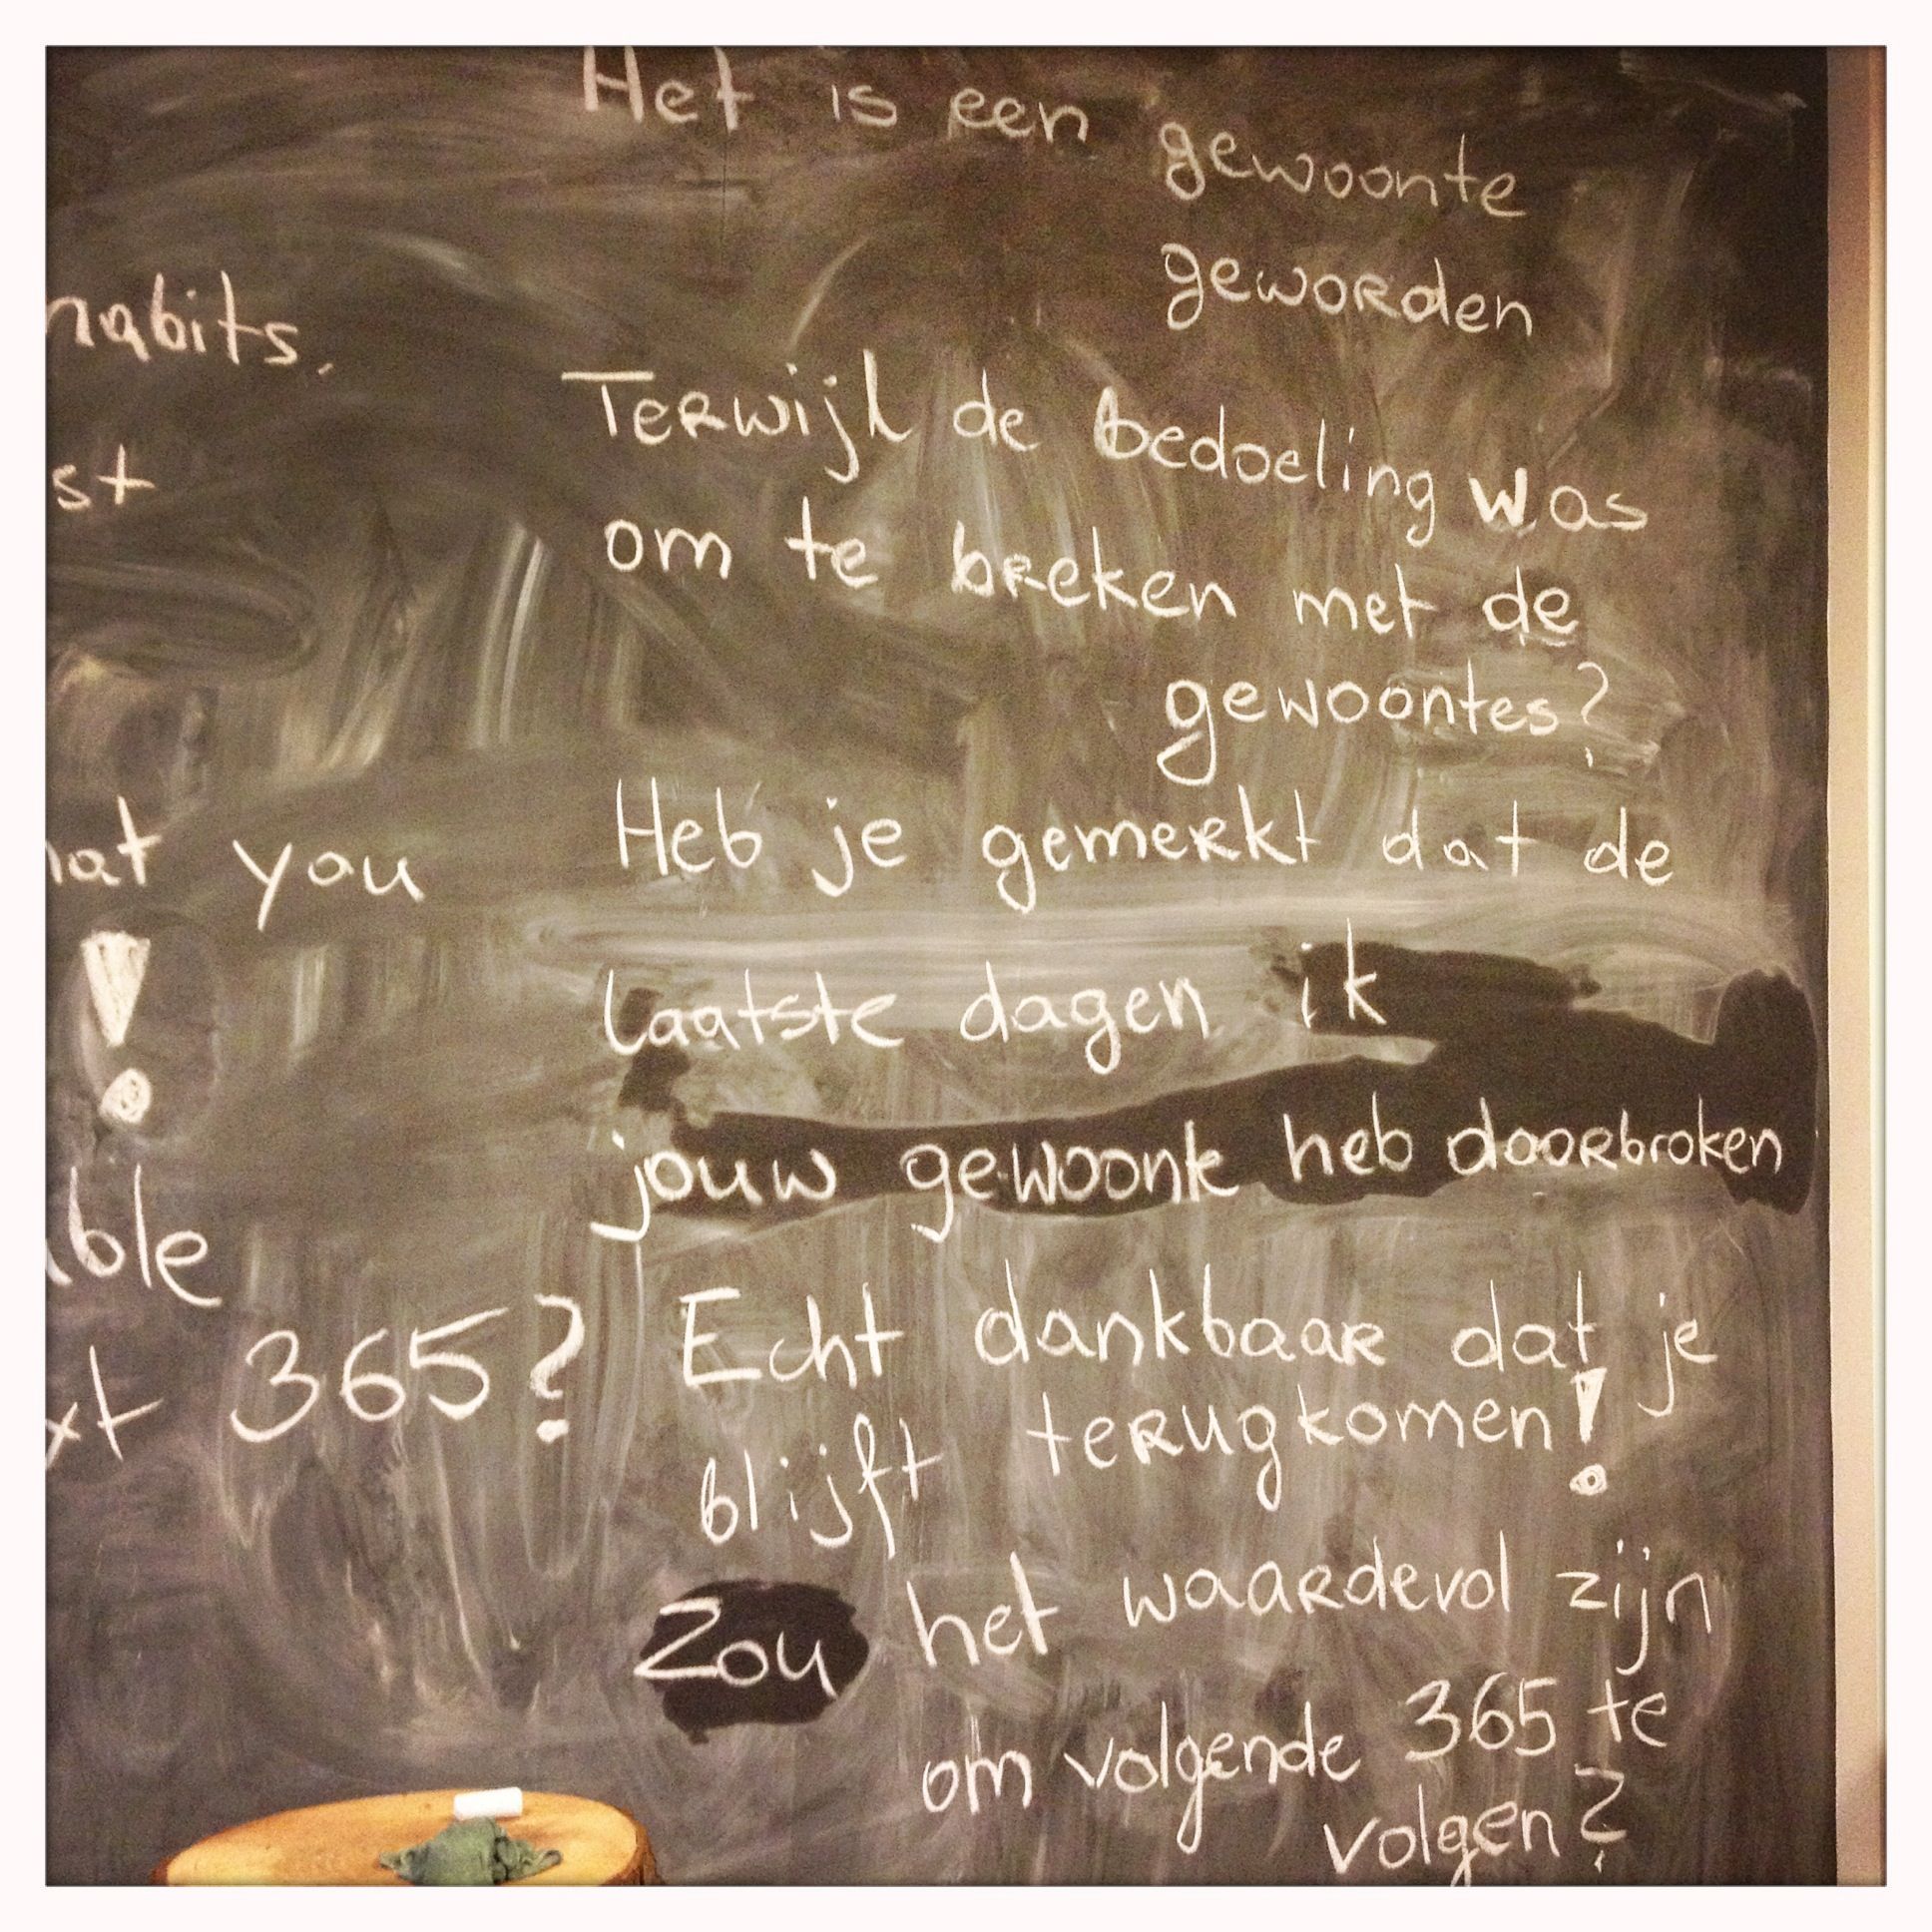 habits.
st
you
!
365?
Het is een gewoonte
geworden
Terwijl de bedoeling was
om te breken met de
gewoontes?
Heb je gemerkt dat de
laatste dagen ik
jouw gewoonte heb doorbroken
Echt dankbaar dat je
blijft terugkomen!
Zou het waardevol zijn
om volgende 365 te
volgen?